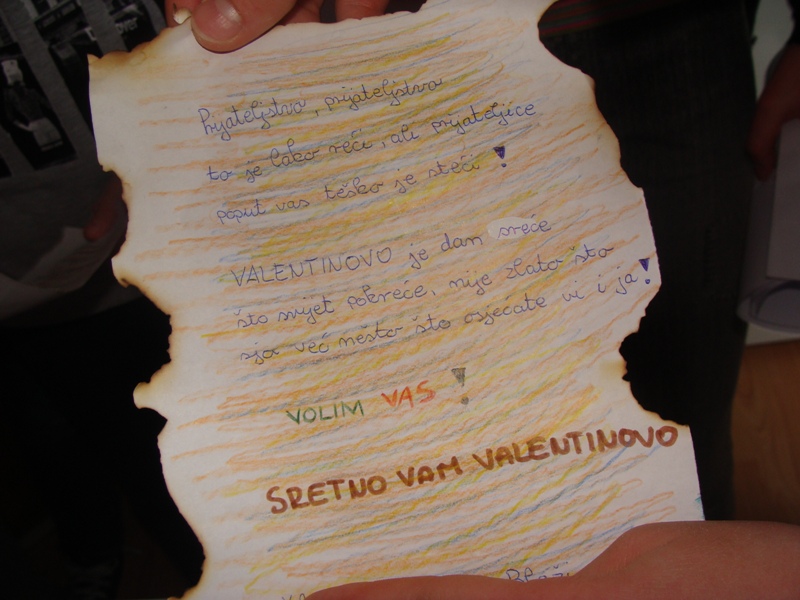 Prijateljstvo, prijateljstvo
to je lako reći, ali prijateljice
poput vas teško je steći !
VALENTINOVO je dan sreće
što svijet pokreće, nije zlato što
sja već nešto što osjećate vi i ja!
VOLIM VAS !
SRETNO VAM VALENTINOVO